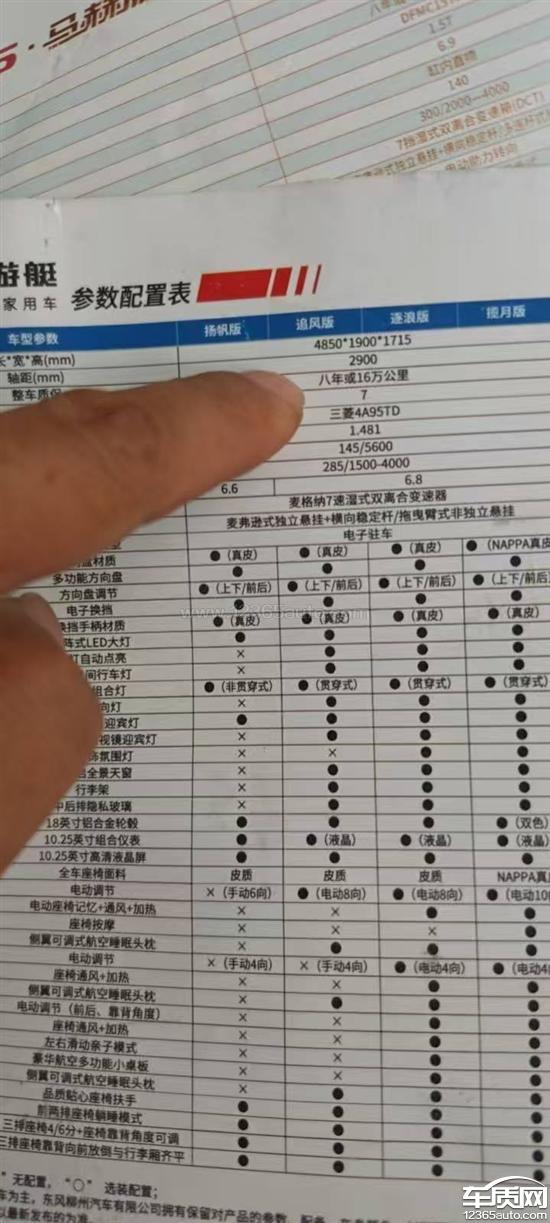 5·马赫
DFMC15T
1.5T
6.9
缸内直喷
140
300/2000—4000
7挡湿式双离合变速箱(DCT)
式独立悬挂+横向稳定杆/多连杆式
电动助力转向
游艇
家用车 参数配置表
车型参数 扬帆版 追风版 逐浪版 揽月版
长*宽*高(mm) 4850*1900*1715
轴距(mm) 2900
整车质保 八年或16万公里
7
三菱4A95TD
1.481
145/5600
285/1500-4000
6.6 6.8
麦格纳7速湿式双离合变速器
麦弗逊式独立悬挂+横向稳定杆/拖曳臂式非独立悬挂
电子驻车
盘材质 ●(真皮) ●(真皮) ●(真皮) ●(NAPPA真皮
多功能方向盘 ● ● ● ●
方向盘调节 ●(上下/前后) ●(上下/前后) ●(上下/前后) ●(上下/前后)
电子换挡 ● ● ● ●
换挡手柄材质 ●(真皮) ●(真皮) ●(真皮) ●(真皮)
阵式LED大灯 ● ● ● ●
灯自动点亮 × ● ● ●
间行车灯 × ● ● ●
组合灯 ●(非贯穿式) ●(贯穿式) ●(贯穿式) ●(贯穿式)
向灯 × ● ● ●
迎宾灯 ● ● ● ●
视镜迎宾灯 × ● ● ●
饰氛围灯 × × ● ●
全景天窗 × ● ● ●
行李架 × ● ● ●
中后排隐私玻璃 × ● ● ●
18英寸铝合金轮毂 ● ● ● ●(双色)
10.25英寸组合仪表 ● ●(液晶) ●(液晶) ●(液晶)
10.25英寸高清液晶屏 ● ● ● ●
全车座椅面料 皮质 皮质 皮质 NAPPA真
电动调节 ×(手动6向) ●(电动8向) ●(电动8向) ●(电动10
电动座椅记忆+通风+加热 × × ● ●
座椅按摩 × × × ●
侧翼可调式航空睡眠头枕 × ● ● ●
电动调节 ×(手动4向) ×(手动4向) ●(电动4向) ●(电动4
座椅通风+加热 × × ● ●
侧翼可调式航空睡眠头枕 × ● ● ●
电动调节(前后、靠背角度) × × ● ●
座椅通风+加热 × × ● ●
左右滑动亲子模式 × × ● ●
豪华航空多功能小桌板 × × ● ●
侧翼可调式航空睡眠头枕 × ● ● ●
品质贴心座椅扶手 ● ● ● ●
前两排座椅躺睡模式 ● ● ● ●
三排座椅4/6分+座椅靠背角度可调 ● ● ● ●
三排座椅靠背向前放倒与行李厢齐平 ● ● ● ●
"无配置,"○" 选装配置;
车为主,东风柳州汽车有限公司拥有保留对产品的参数、配
以最新发布的为准。
www.12365auto.com
车质网
12365auto.com